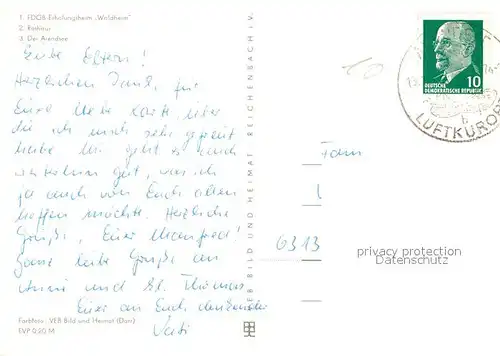 1. FDGB-Erholungsheim „Waldheim"
2. Rathaus
3. Der Arendsee
Liebe Eltern!
Herzlichen Dank für
Eure liebe Karte, über
die ich mich sehr gefreut
habe. Mir geht es auch
weiterhin gut, was ich
ja auch von Euch allen
hoffen möchte. Herzliche
Grüße, Euer Manfred!
Ganz liebe Grüße an
und Kl. Thomas
Euer an Euch denkender
Vati
Farbfoto: VEB Bild und Heimat (Darr)
EVP 0,20 M
VEB BILD UND HEIMAT REICHENBACH I. V.
Fam
6313
10
DEUTSCHE
DEMOKRATISCHE REPUBLIK
10
b
LUFTKUROR
privacy protection
Datenschutz